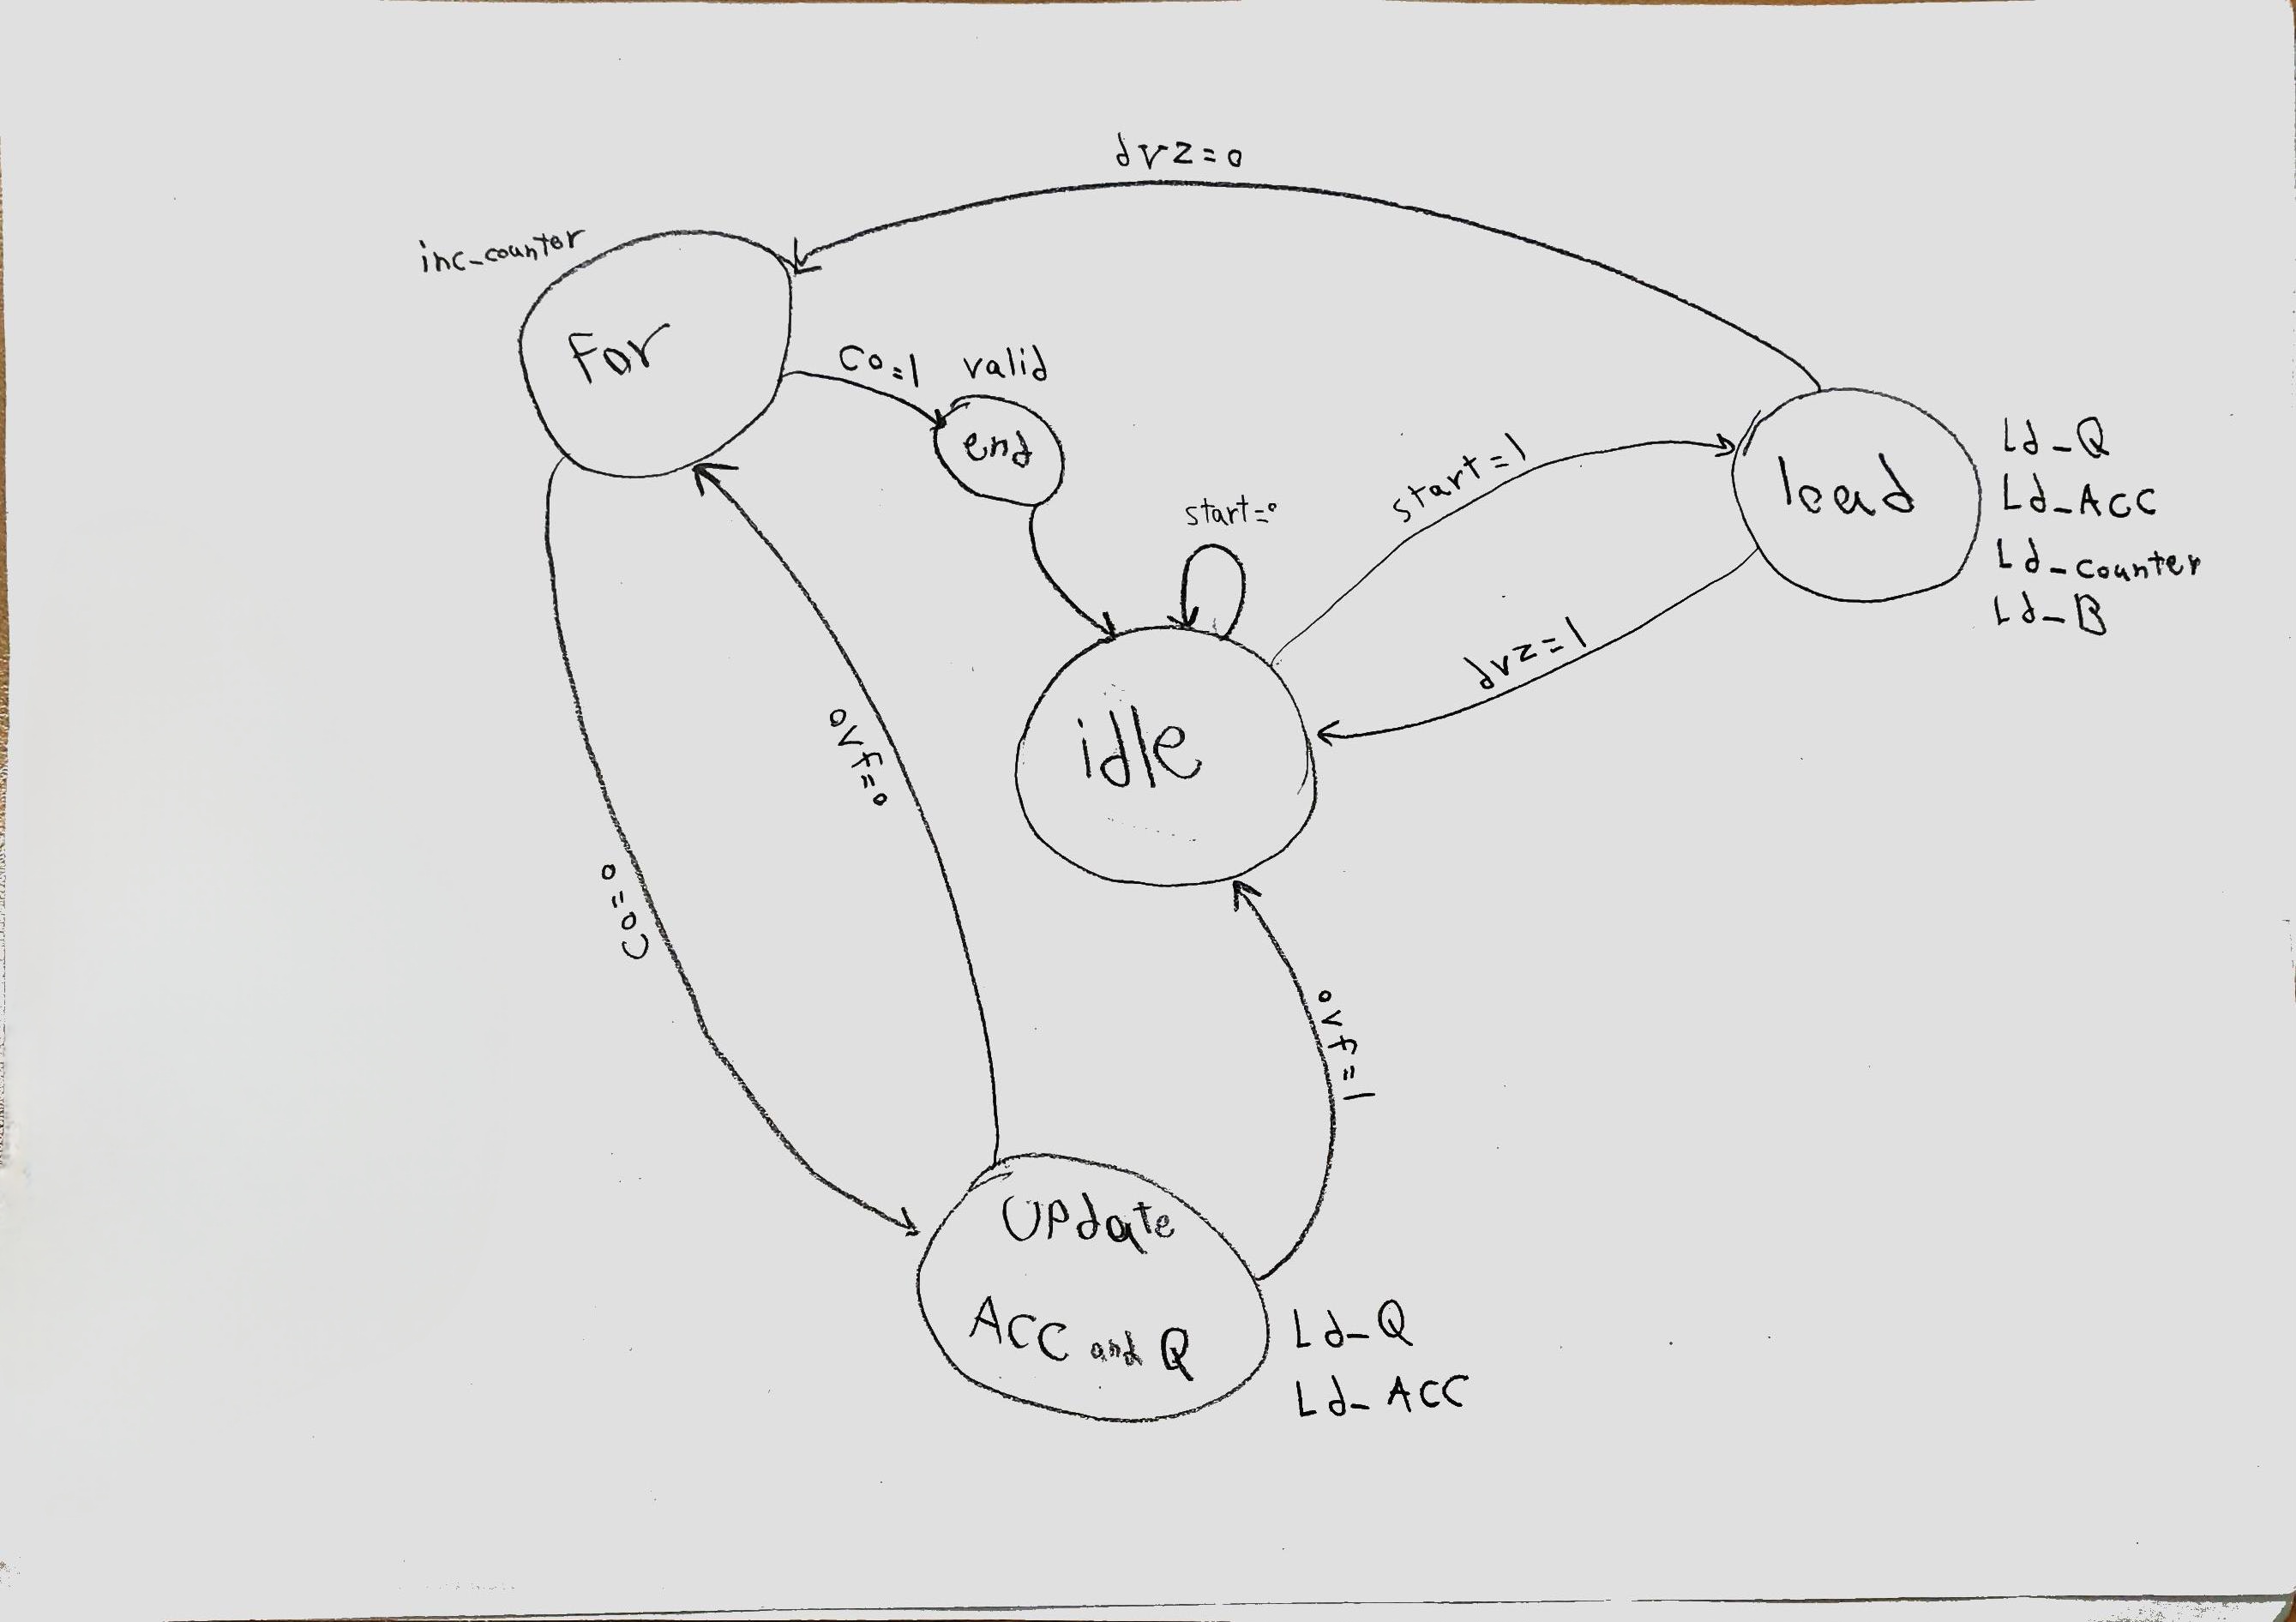 dvz=0
inc_counter
For
Co=1
valid
end
start=0
start=1
load
Ld_Q
Ld_ACC
Ld_counter
Ld_B
dvz=1
idle
ovf=0
Co=0
ovf=1
UPdate
ACC and Q
Ld_Q
Ld_ACC